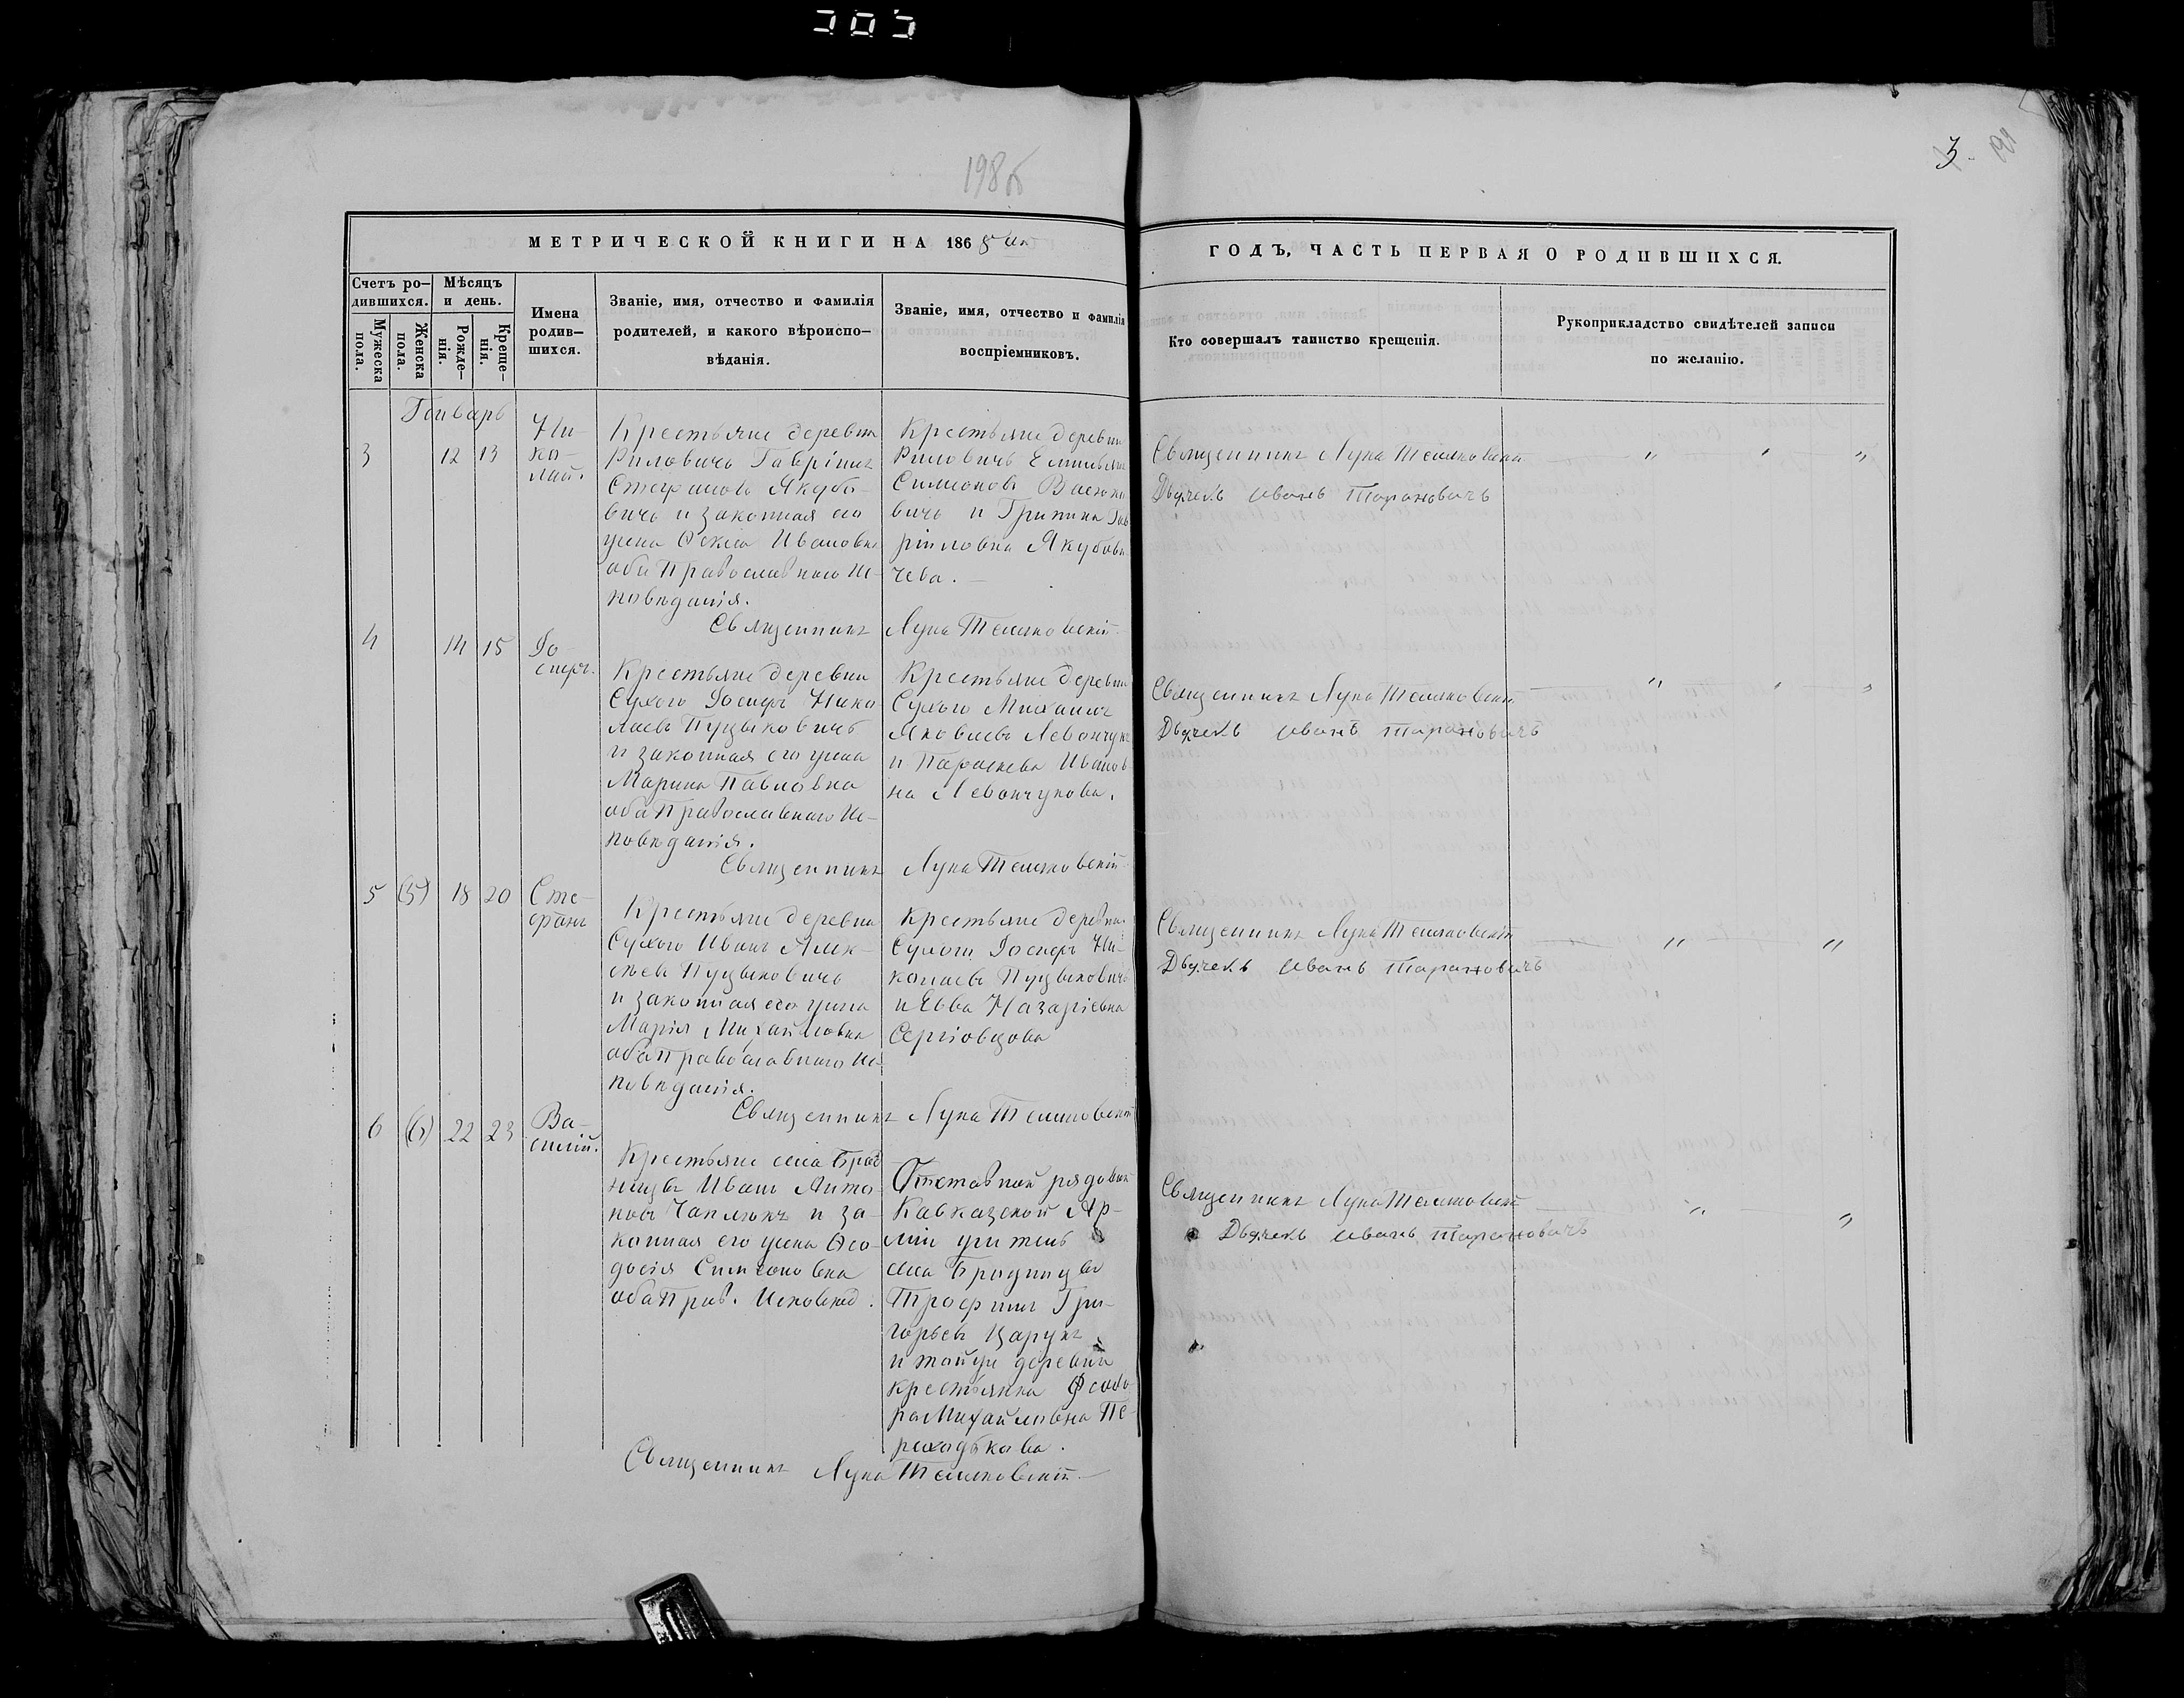 198б
3.
МЕТРИЧЕСКОЙ КНИГИ НА 1868 й
ГОДЪ, ЧАСТЬ ПЕРВАЯ О РОДИВШИХСЯ.
Счетъ ро-
дившихся.
Мужеска
пола.
Женска
пола.
Мѣсяцъ
и день.
Рожде-
нія.
Креще-
нія.
Имена
родив-
шихся.
Званіе, имя, отчество и фамилія
родителей, и какого вѣроиспо-
вѣданія.
Званіе, имя, отчество и фамилія
воспріемниковъ.
Кто совершалъ таинство крещенія.
Рукоприкладство свидѣтелей записи
по желанію.
Генварь
3
12 13
Ни-
ко-
лай.
Крестьяне деревни
Риловичь Гавріилъ
Стефановъ Якубо-
вичь и законная его
жена Ѳекла Ивановна
оба Православнаго Ис-
повѣданія.
Крестьяне деревни
Риловичь Емильянъ
Симеоновъ
вичь и Грипина Гав
ріиловна Якубови
чева.
Священникъ Лука
Дьячекъ Иванъ Тарановичъ
" " "
Священникъ Лука
4
14 15
Іо-
сифъ.
Крестьяне деревни
Сухого Іосифъ Нико
лаевъ Пуцыковичъ
и законная его жена
Марина Павловна
оба Православнаго Ис-
повѣданія.
Крестьяне деревни
Сухого Михаилъ
Яковлевъ Левончукъ
и Параскева Иванов
на Левончукова.
Священникъ Лука
Дьячекъ Иванъ Тарановичъ
" " "
Священникъ Лука
5 (5) 18 20
Сте-
фанъ
Крестьяне деревни
Сухого Иванъ Алек-
сѣевъ Пуцыковичъ
и законная его жена
Марія Михайловна
оба Православнаго Ис-
повѣданія.
Крестьяне деревни
Сухого Іосифъ Ни-
колаевъ Пуцыковичъ
и Евва Назаріевна
Священникъ Лука
Дьячекъ Иванъ Тарановичъ
" "
Священникъ Лука
6 (6) 22 23
Ва-
силій.
Крестьяне села Брод
ницы Иванъ Анто-
новъ Чаплюкъ и за-
конная его жена Ѳео-
досія Симеоновна
оба Прав. Исповѣд.
Отставной рядовой
Кавказской Ар-
міи житель
села Бродницы
Трофимъ Гри-
горьевъ Царукъ
и тойже деревни
крестьянка Ѳеодо
ра Михайловна Пе-
реходькова.
Священникъ Лука
Дьячекъ Иванъ Тарановичъ
" "
Священникъ Лука